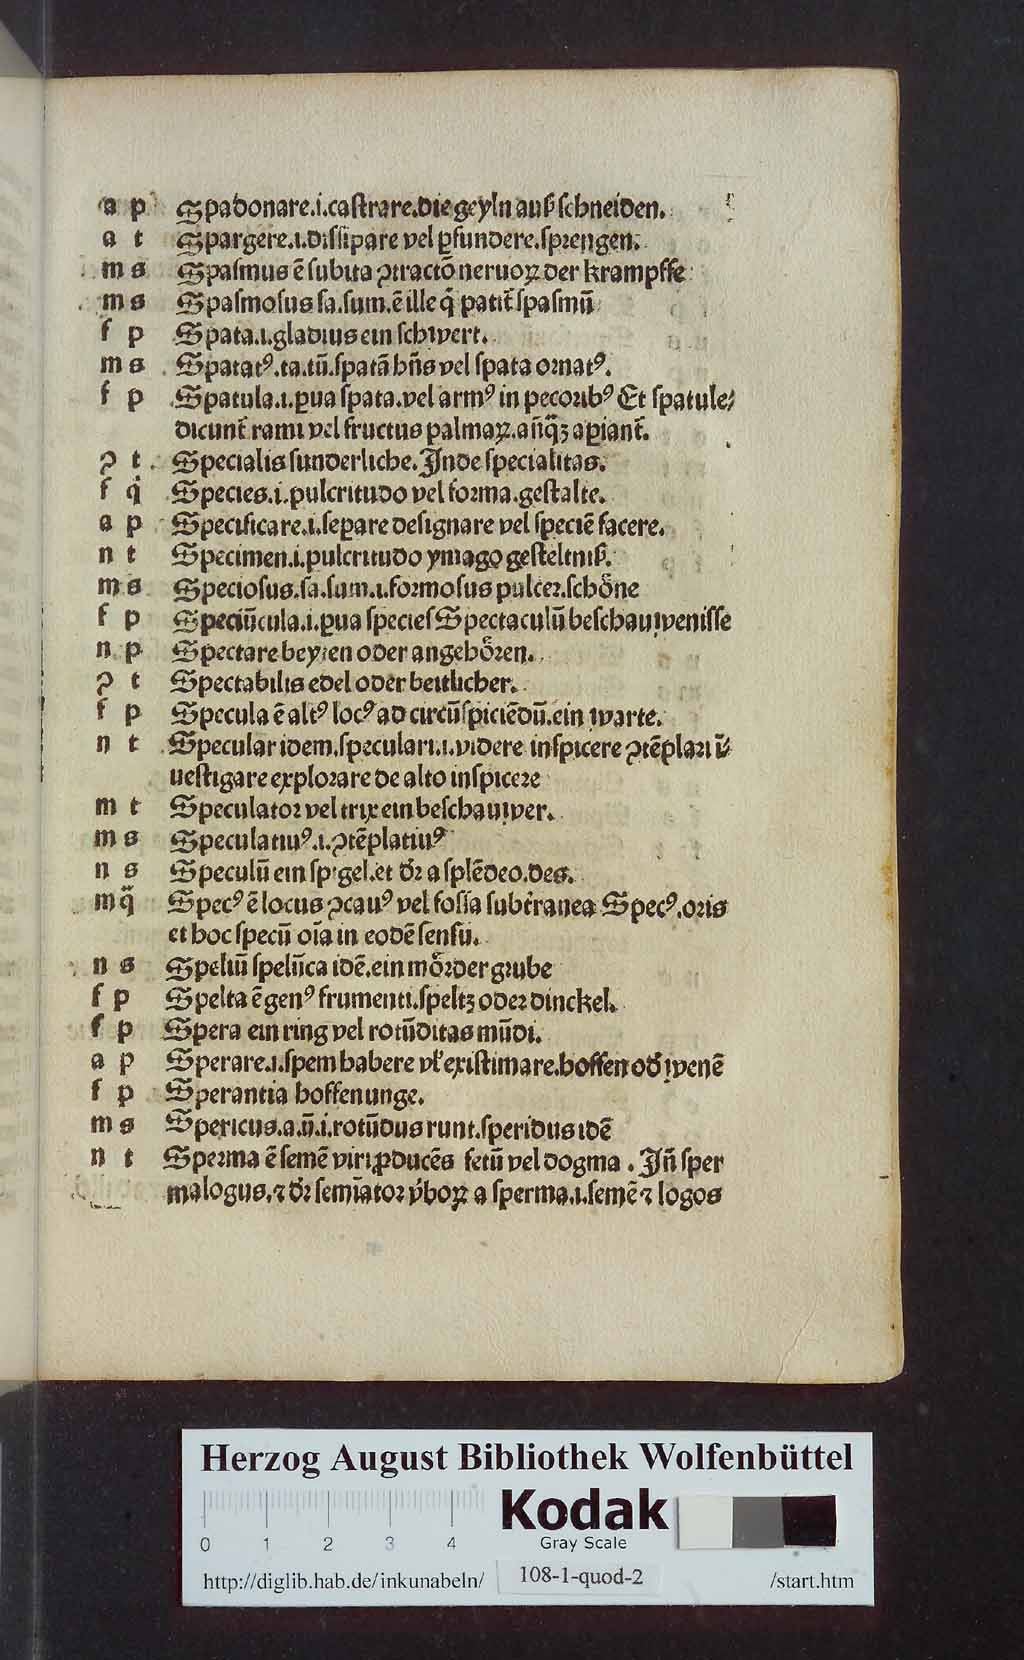 a p Spadonare.i.castrare.die geyln auß schneiden.
a t Spargere.i.dissipare vel ꝑfundere.sprengen.
m s Spasmus ē subita ꝯtractō neruoꝝ der krampffe
m s Spasmosus sa.sum.ē ille q̇ patit̄ spasmū
f p Spata.i.gladius ein schwert.
m s Spatatꝰ.ta.tū.spatā hn̄s vel spata ornatꝰ.
f p Spatula.i.ꝑua spata.vel armꝰ in pecoribꝰ Et spatule/
dicunt̄ rami vel fructus palmaꝝ.añq̄ꝫ aꝑiant̄.
ꝯ t Specialis sunderliche.Inde specialitas.
f q̇ Species.i.pulcritudo vel forma.gestalte.
a p Specificare.i.seꝑare designare vel speciē facere.
n t Specimen.i.pulcritudo ymago gesteltniß.
m s Speciosus.sa.sum.i.formosus pulcer.schoͤne
f p Speciūcula.i.ꝑua species Spectaculū beschauwenisse
n p Spectare beyten oder angehoͤren.
ꝯ t Spectabilis edel oder heitlicher.
f p Specula ē altꝰ locꝰ ad circūspiciēdū.ein warte.
n t Specular idem.speculari.i.videre inspicere ꝯtēplari ī
uestigare explorare de alto inspicere
m t Speculator vel trix ein beschauwer.
m s Speculatiuꝰ.i.ꝯtēplatiuꝰ
n s Speculū ein spigel.et dr̄ a splēdeo.des.
m q̈ Specꝰ ē locus ꝯcauꝰ vel fossa subt̄ranea Specꝰ.oris
et hoc specū oīa in eodē sensu.
n s Speliū spelūca idē.ein moͤrder grube
f p Spelta ē genꝰ frumenti.speltz oder dinckel.
f p Spera ein ring vel rotūditas mūdi.
a p Sperare.i.spem habere vl̄ existimare.hoffen od̄ wenē
f p Sperantia hoffenunge.
m s Spericus.a.ū.i.rotūdus runt.speridus idē
n t Sperma ē semē viri ꝓducēs fetū vel dogma . Iñ sper
malogus.ꝛ dr̄ semīator v̄boꝝ a sperma.i.semē ꝛ logos
Herzog August Bibliothek Wolfenbüttel
0 1 2 3 4
Kodak
Gray Scale
http://diglib.hab.de/inkunabeln/ 108-1-quod-2 /start.htm